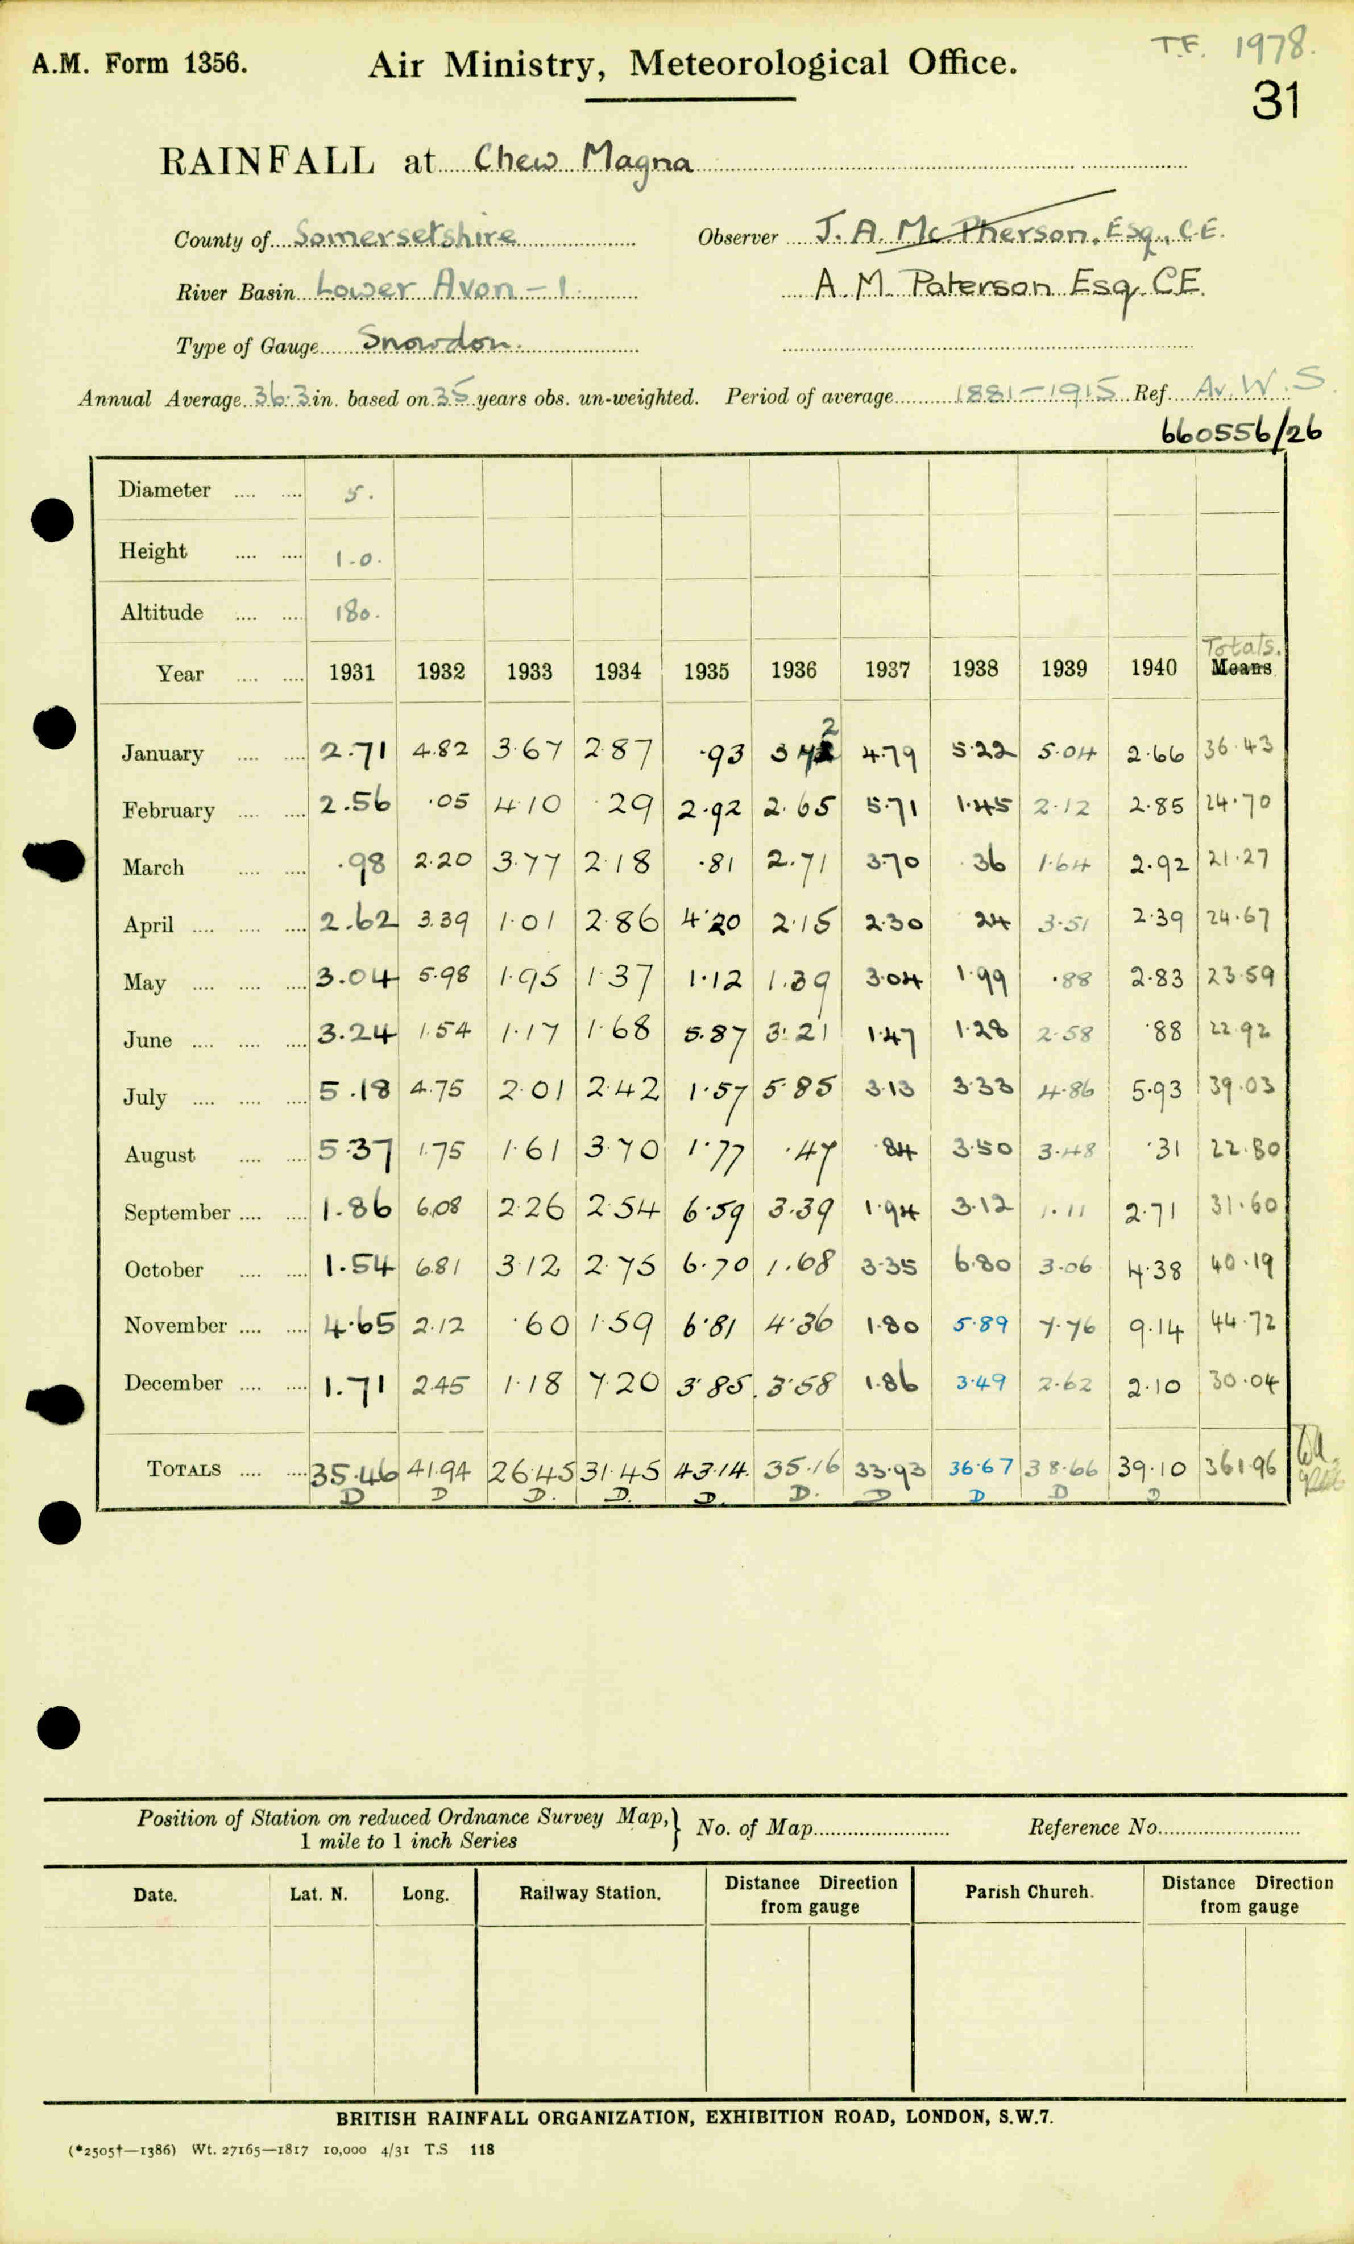 A.M. Form 1356. Air Ministry, Meteorological Office. T.F. 1978.
31
RAINFALL at Chew Magna
County of Somersetshire Observer J. A. McPherson, Esq., C.E.
River Basin Lower Avon – 1. A. M. Paterson Esq. C.E.
Type of Gauge Snowdon.
Annual Average 36.3 in. based on 35 years obs. un-weighted. Period of average 1881–1915 Ref. Av. W. S.
660556/26
Diameter .... .... 5.
Height .... .... 1.0.
Altitude .... .... 180.
Totals.
Year .... .... 1931 1932 1933 1934 1935 1936 1937 1938 1939 1940 Means
January .... .... 2.71 4.82 3.67 2.87 .93 3.72 4.79 5.22 5.04 2.66 36.43
February .... .... 2.56 .05 4.10 .29 2.92 2.65 5.71 1.45 2.12 2.85 24.70
March .... .... .98 2.20 3.77 2.18 .81 2.71 3.70 .36 1.64 2.92 21.27
April .... .... .... 2.62 3.39 1.01 2.86 4.20 2.15 2.30 .24 3.51 2.39 24.67
May .... .... .... 3.04 5.98 1.95 1.37 1.12 1.39 3.04 1.99 .88 2.83 23.59
June .... .... .... 3.24 1.54 1.17 1.68 5.87 3.21 1.47 1.28 2.58 .88 22.92
July .... .... .... 5.18 4.75 2.01 2.42 1.57 5.85 3.13 3.33 4.86 5.93 39.03
August .... .... 5.37 1.75 1.61 3.70 1.77 .47 .84 3.50 3.48 .31 22.80
September .... .... 1.86 6.08 2.26 2.54 6.59 3.39 1.94 3.12 1.11 2.71 31.60
October .... .... 1.54 6.81 3.12 2.75 6.70 1.68 3.35 6.80 3.06 4.38 40.19
November .... .... 4.65 2.12 .60 1.59 6.81 4.36 1.80 5.89 7.76 9.14 44.72
December .... .... 1.71 2.45 1.18 7.20 3.85 3.58 1.86 3.49 2.62 2.10 30.04
TOTALS .... .... 35.46 41.94 26.45 31.45 43.14 35.16 33.93 36.67 38.66 39.10 361.96
D D D. D. D. D. D D D D
Position of Station on reduced Ordnance Survey Map, } No. of Map Reference No.
1 mile to 1 inch Series
Date. Lat. N. Long. Railway Station. Distance Direction from gauge Parish Church. Distance Direction from gauge
BRITISH RAINFALL ORGANIZATION, EXHIBITION ROAD, LONDON, S.W.7.
(*2505†—1386) Wt. 27165—1817 10,000 4/31 T.S 118